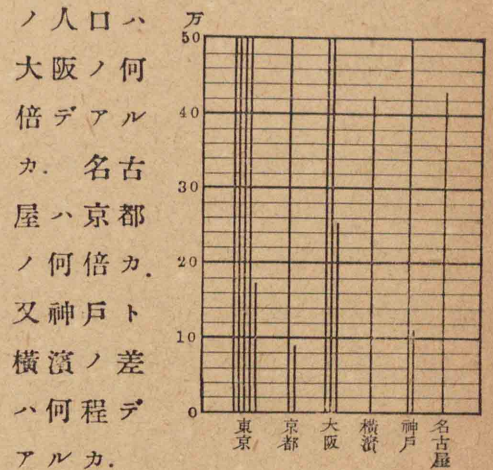 ノ人口ハ
大阪ノ何
倍デアル
カ. 名古
屋ハ京都
ノ何倍カ.
又神戸ト
横濱ノ差
ハ何程デ
アルカ.
万
50
40
30
20
10
0
東京
京都
大阪
横濱
神戸
名古屋